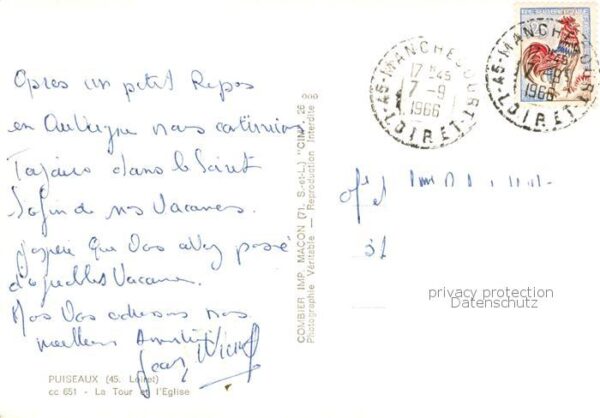 Apres un petit Repos
en Auvergne nous continuons
Toujours dans le Loiret
la fin de nos Vacances.
J'espere que vous avez passé
d'agréables Vacances.
Nous vous adressons nos
meilleurs Amitiés
Jean
PUISEAUX (45. Loiret)
cc 651 - La Tour et l'Eglise
COMBIER IMP. MACON (71, S.-et-L.) "CIM" 26
Photographie Véritable — Reproduction Interdite
45-MANCHECOURT
17 H 45
7-9
1966
LOIRET
45-MANCHECOURT
17 H 45
7-9
1966
LOIRET
privacy protection
Datenschutz